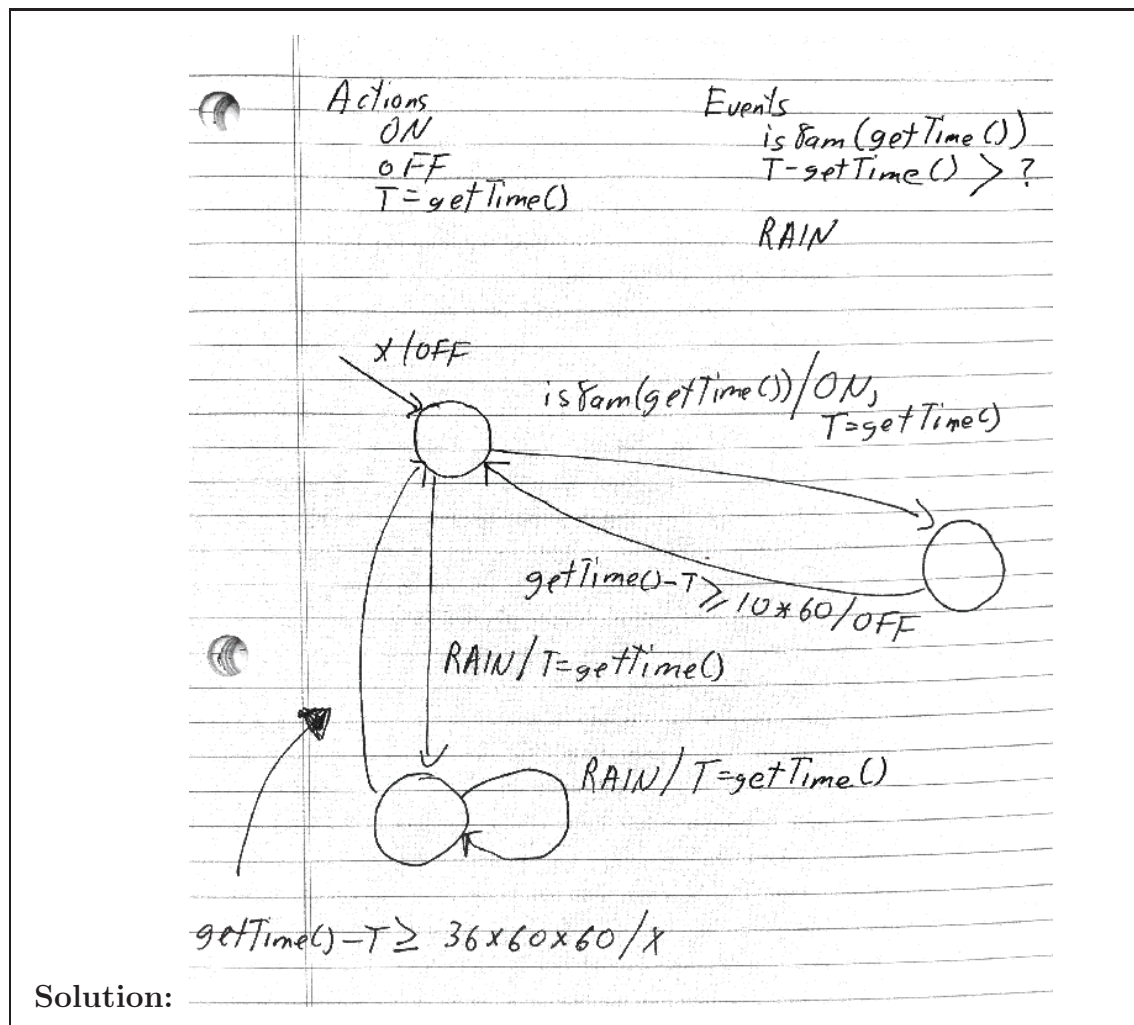 Actions
ON
OFF
T=getTime()
Events
is8am(getTime())
T-getTime() > ?
RAIN
X/OFF
is8am(getTime())/ON,
T=getTime()
getTime()-T≥10*60/OFF
RAIN/T=getTime()
RAIN/T=getTime()
getTime()-T≥ 36x60x60/X
Solution: